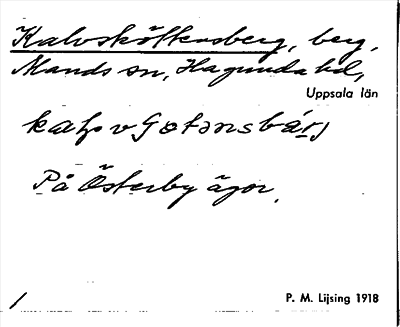 Kalvskötkersberg, berg,
Mands sn, Hagunda hd,
Uppsala län
På Österby ägor.
P. M. Lijsing 1918